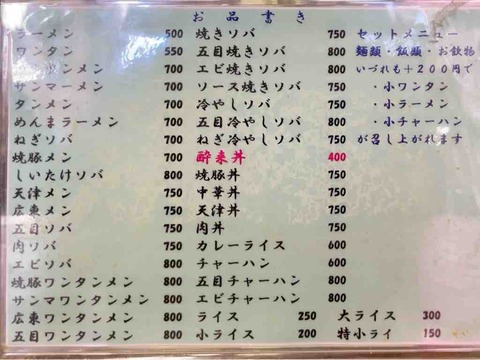 お品書き
ラーメン 500
ワンタン 550
ワンタンメン 700
サンマーメン 700
タンメン 700
めんまラーメン 700
ねぎソバ 700
焼豚メン 700
しいたけソバ 800
天津メン 750
広東メン 750
五目ソバ 750
肉ソバ 750
エビソバ 800
焼豚ワンタンメン 800
サンマワンタンメン 800
広東ワンタンメン 800
五目ワンタンメン 800
焼きソバ 750
五目焼きソバ 800
エビ焼きソバ 800
ソース焼きソバ 750
冷やしソバ 750
五目冷やしソバ 800
ねぎ冷やしソバ 750
酔来丼 400
焼豚丼 750
中華丼 750
天津丼 750
肉丼 750
カレーライス 600
チャーハン 600
五目チャーハン 800
エビチャーハン 800
ライス 250
小ライス 200
大ライス 300
特小ライ 150
セットメニュー
麺類・飯類・お飲物
いづれも＋200円で
・小ワンタン
・小ラーメン
・小チャーハン
が召し上がれます